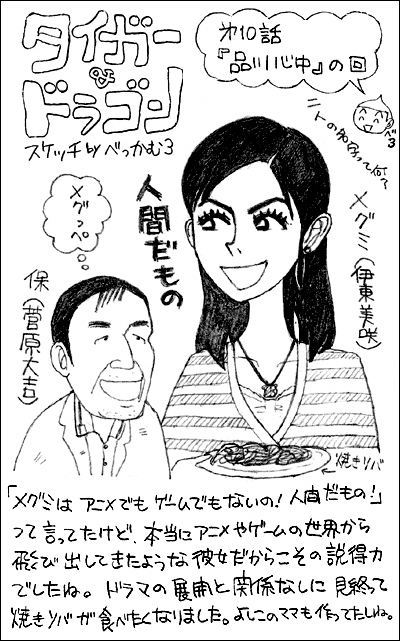 タイガー
&
ドラゴン
スケッチ by べっかむ3
第10話
『品川心中』の回
べ3
メグっぺ
人間だもの
メグミ(伊東美咲)
保(菅原大吉)
焼きソバ
「メグミはアニメでもゲームでもないの!人間だもの!」
って言ってたけど、本当にアニメやゲームの世界から
飛び出してきたような彼女だからこその説得力
でしたね。ドラマの展開と関係なしに見終って
焼きソバが食べたくなりました。よしこのママも作ってたしね。